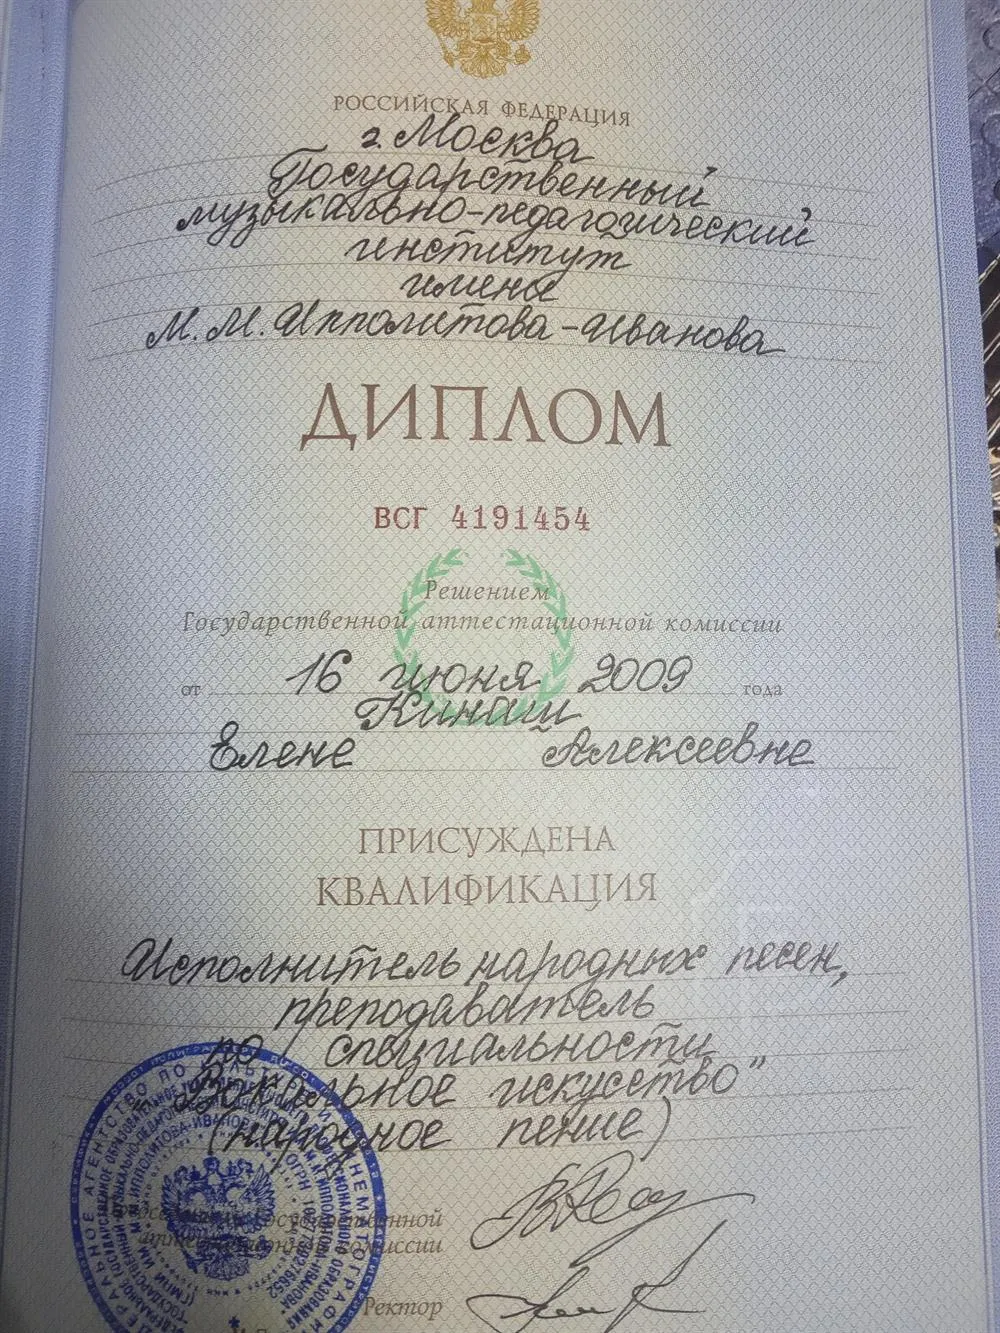 РОССИЙСКАЯ ФЕДЕРАЦИЯ
г. Москва
Государственный
музыкально-педагогический
институт
имени
М.М. Ипполитова-Иванова
ДИПЛОМ
ВСГ 4191454
Решением
Государственной аттестационной комиссии
от 16 июня 2009 года
Кинаш
Елене Алексеевне
ПРИСУЖДЕНА
КВАЛИФИКАЦИЯ
Исполнитель народных песен,
преподаватель
по специальности
"Вокальное искусство"
(народное пение)
Государственной
аттестационной комиссии
Ректор